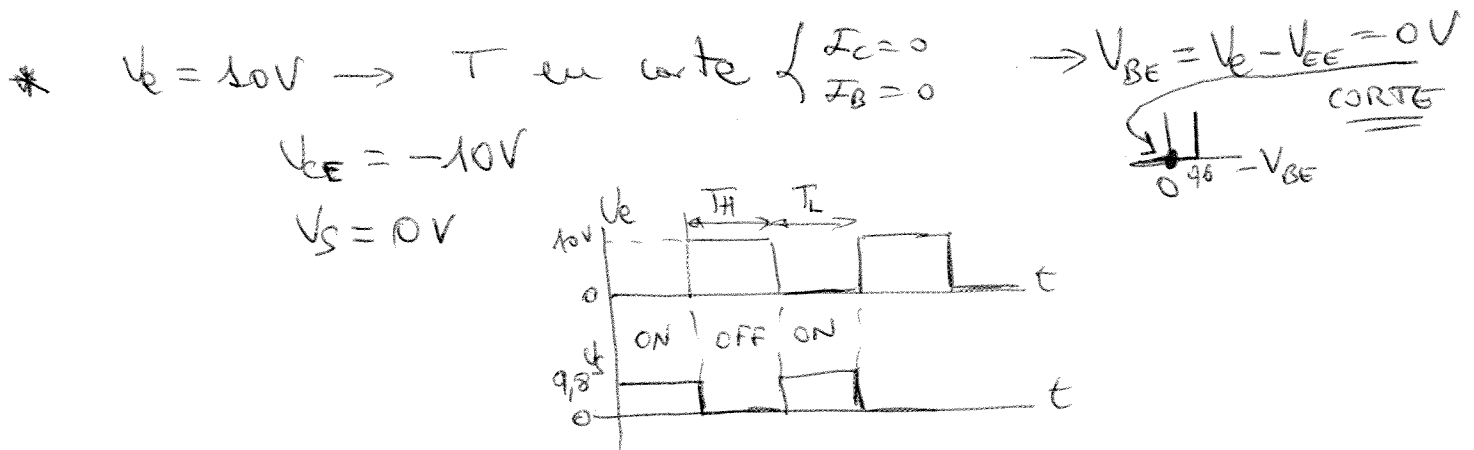 * Ve = 10V → T en corte { IC = 0 IB = 0 → VBE = Ve - VEE = 0V
CORTE
VCE = -10V
0 0,6 -VBE
VS = 0V
Ve TH TL
10V
0 t
ON OFF ON
VS
9,8
0 t